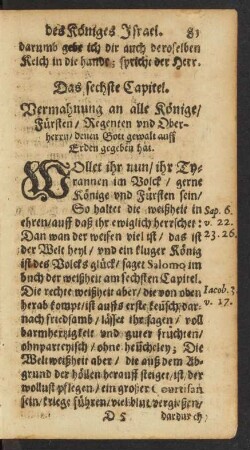 des Königes Israel. 83
darumb gebe ich dir auch deroselben
Kelch in die hande; spricht der Herr.
Das sechste Capitel.
Vermahnung an alle Könige/
Fürsten/ Regenten vnd Ober-
herrn/ denen Gott gewalt auff
Erden gegeben hat.
WOllet ihr nun/ ihr Ty-
rannen im Volck/ gerne
Könige vnd Fürsten sein/
So haltet die weißheit in Sap. 6.
ehren/ auff daß ihr ewiglich herrschet: v. 22.
Dan wan der weisen viel ist/ das ist 23. 26.
der Welt heyl/ vnd ein kluger König
ist des Volcks glück/ saget Salomo im
buch der weißheit am sechsten Capitel.
Die rechte weißheit aber/ die von oben Iacob. 3.
herab kompt/ ist auffs erste keusch/ dar- v. 17.
nach friedsam/ lässet ihr sagen/ voll
barmhertzigkeit vnd guter früchten/
ohnparteyisch/ ohne heucheley; Die
Weltweißheit aber/ die auß dem Ab-
grund der höllen herauff steiget/ ist der
wollust pflegen/ ein großer Courtisan
sein/ kriege führen/ viel blut vergießen/
D 5 dardurch